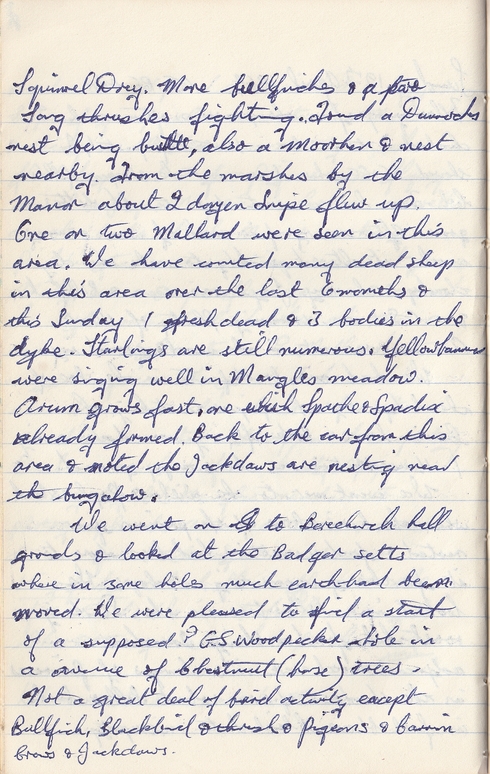 Squirrel Drey. More bullfinches & a two
Song thrushes fighting. Found a Dunnocks
nest being built, also a Moorhen & nest
nearby. From the marshes by the
Manor about 2 dozen Snipe flew up.
One or two Mallard were seen in this
area. We have counted many dead sheep
in this area over the last 6 months &
this Sunday 1 fresh dead & 3 bodies in the
dyke. Starlings are still numerous. Yellowhammer
were singing well in Mangles meadow.
Arum grows fast, one with Spathe & Spadix
already formed. Back to the car from this
area & noted the Jackdaws are nesting near
the bungalow.
We went on to Berechurch hall
grounds & looked at the Badger setts
where in some holes much earth had been
moved. We were pleased to find a start
of a supposed? G.S. Woodpecker hole in
a avenue of chestnut (horse) trees.
Not a great deal of bird activity except
Bullfinch, Blackbird & thrush & pigeons & carrion
crows & Jackdaws.